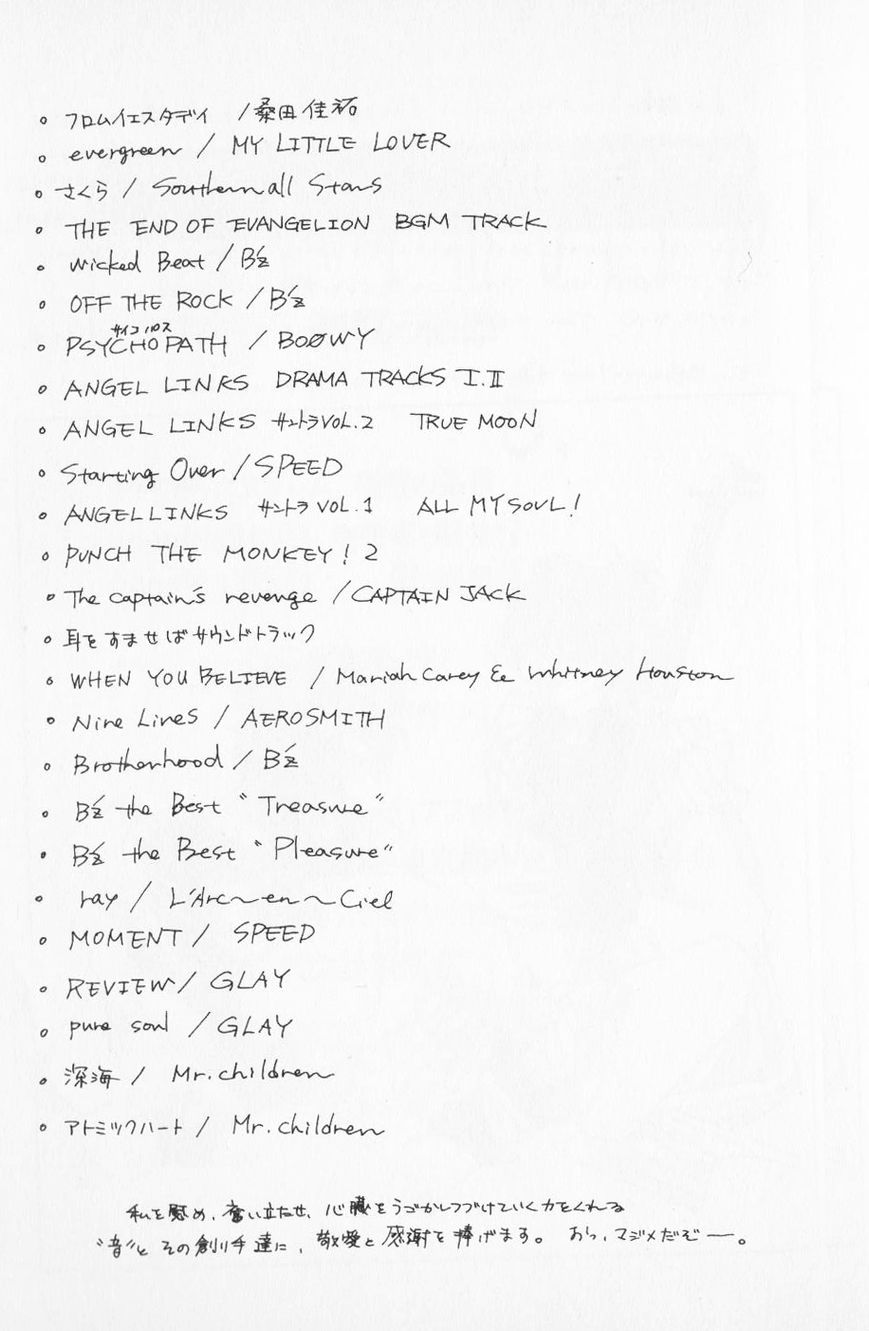 。フロムイエスタデイ /桑田佳祐
。evergreen / MY LITTLE LOVER
。さくら / Southern all Stars
。THE END OF EVANGELION BGM TRACK
。wicked Beat / B'z
。OFF THE ROCK / B'z
サイコパス
。PSYCHOPATH / BOØWY
。ANGEL LINKS DRAMA TRACKS I.II
。ANGEL LINKS サントラ VOL.2 TRUE MOON
。Starting Over / SPEED
。ANGEL LINKS サントラ VOL.1 ALL MY SOUL!
。PUNCH THE MONKEY! 2
。The captain's revenge / CAPTAIN JACK
。耳をすませばサウンドトラック
。WHEN YOU BELIEVE / Mariah Carey & Whitney Houston
。Nine Lives / AEROSMITH
。Brotherhood / B'z
。B'z the Best "Treasure"
。B'z the Best "Pleasure"
。ray / L'Arc〜en〜Ciel
。MOMENT / SPEED
。REVIEW / GLAY
。pure soul / GLAY
。深海 / Mr.children
。アトミックハート / Mr.children
私を慰め、奮い立たせ、心臓をうごかしつづけていく力をくれる
"音"と その創り手達に、敬愛と感謝を捧げます。 おっ、マジメだぞー。